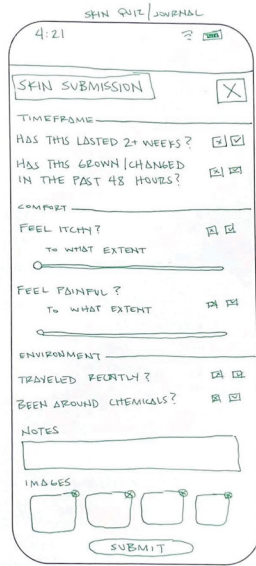 SKIN QUIZ/JOURNAL
4:21
SKIN SUBMISSION
X
TIMEFRAME
HAS THIS LASTED 2+ WEEKS?
HAS THIS GROWN/CHANGED
IN THE PAST 48 HOURS?
COMFORT
FEEL ITCHY?
TO WHAT EXTENT
FEEL PAINFUL?
TO WHAT EXTENT
ENVIRONMENT
TRAVELED RECENTLY?
BEEN AROUND CHEMICALS?
NOTES
IMAGES
SUBMIT